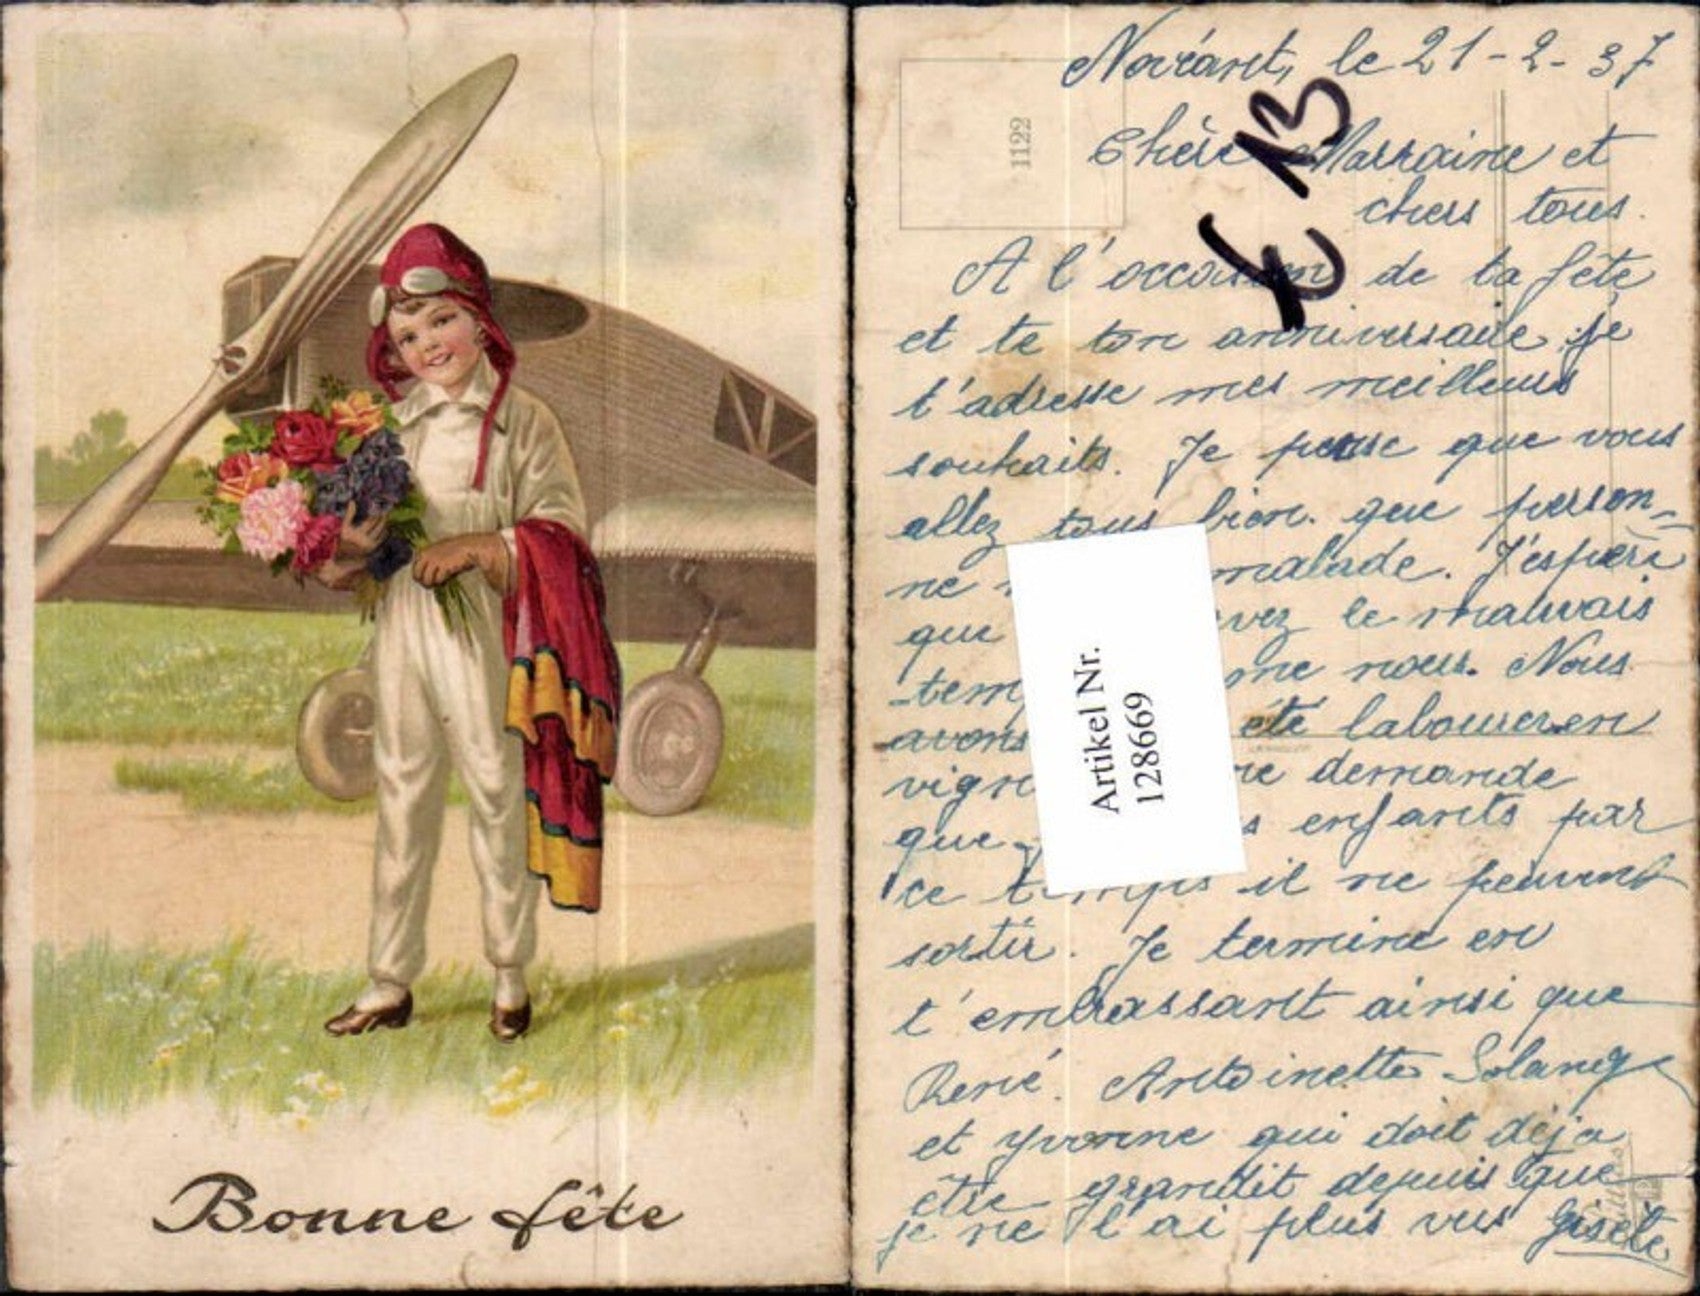 Bonne fête
Novéant, le 21-2-37
1122
€ 13
Chère Marraine et
chers tous.
A l'occasion de ta fête
et te ton anniversaire je
t'adresse mes meilleurs
souhaits. Je pense que vous
allez tous bien. que person-
ne malade. J'espère
que le mauvais
nous. Nous
avons été labourer en
demande
que enfants par
ce temps il ne peuvent
sortir. Je termine en
t'embrassant ainsi que
René. Antoinette Solange
et Yvonne qui doit déja
être grandit depuis que
je ne l'ai plus vus Gisèle
Artikel Nr.
1286669